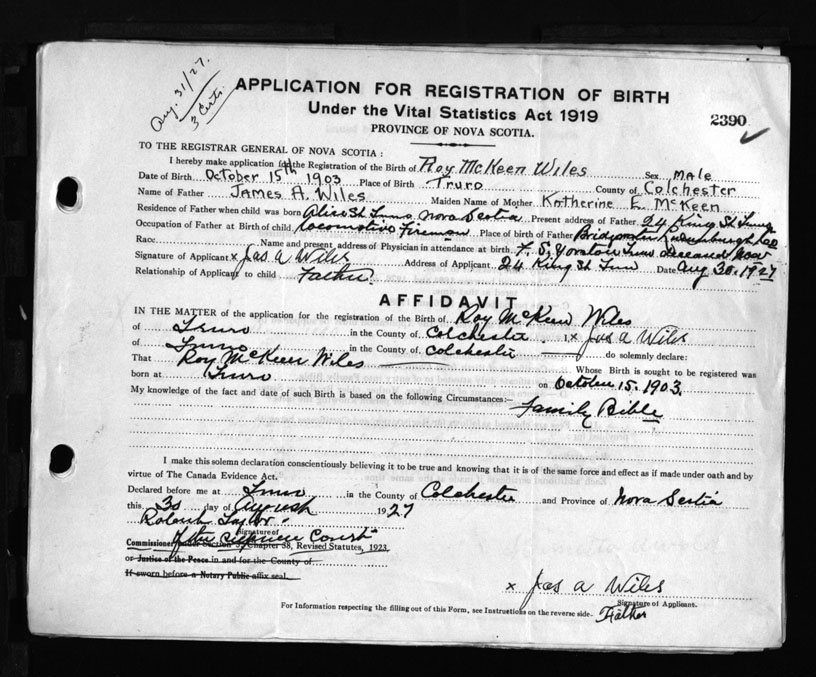 Aug. 31/27.
3 Certs.
APPLICATION FOR REGISTRATION OF BIRTH
Under the Vital Statistics Act 1919
2390
PROVINCE OF NOVA SCOTIA.
TO THE REGISTRAR GENERAL OF NOVA SCOTIA :
I hereby make application for the Registration of the Birth of Roy McKeen Wiles Sex MALE
Date of Birth October 15th 1903 Place of Birth Truro County of Colchester
Name of Father JAMES A. WILES Maiden Name of Mother Katherine E. McKeen
Residence of Father when child was born Alice St Truro Nova Scotia Present address of Father 24 King St Truro
Occupation of Father at Birth of child Locomotive Fireman Place of birth of Father Bridgewater Lunenburgh Co
Race Name and present address of Physician in attendance at birth F. S. Yorston Truro deceased now
Signature of Applicant x Jas A Wiles Address of Applicant 24 King St Truro Date Aug 30. 1927
Relationship of Applicant to child Father.
AFFIDAVIT
IN THE MATTER of the application for the registration of the Birth of Roy McKeen Wiles
of Truro in the County of Colchester. I, x Jas A Wiles
of Truro in the County of Colchester do solemnly declare:
That Roy McKeen Wiles Whose Birth is sought to be registered was
born at Truro on October 15. 1903.
My knowledge of the fact and date of such Birth is based on the following Circumstances:—
Family Bible
I make this solemn declaration conscientiously believing it to be true and knowing that it is of the same force and effect as if made under oath and by
virtue of The Canada Evidence Act.
Declared before me at Truro in the County of Colchester and Province of Nova Scotia
this 30 day of August 1927
Taylor
Signature of
of the Supreme Court
Commissioner under Section 39, Chapter 38, Revised Statutes, 1923,
or Justice of the Peace in and for the County of
If sworn before a Notary Public affix seal.
x Jas A Wiles
Signature of Applicant.
For Information respecting the filling out of this Form, see Instructions on the reverse side.
Father